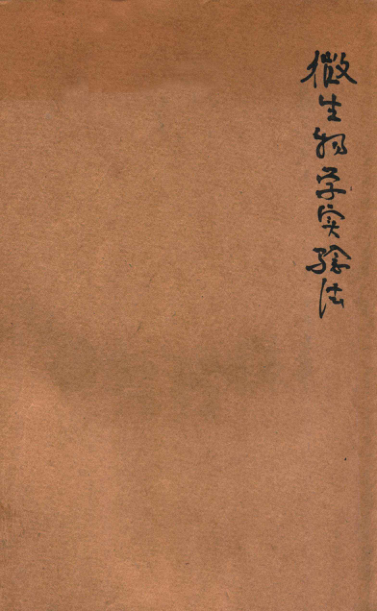 微生物学实验法